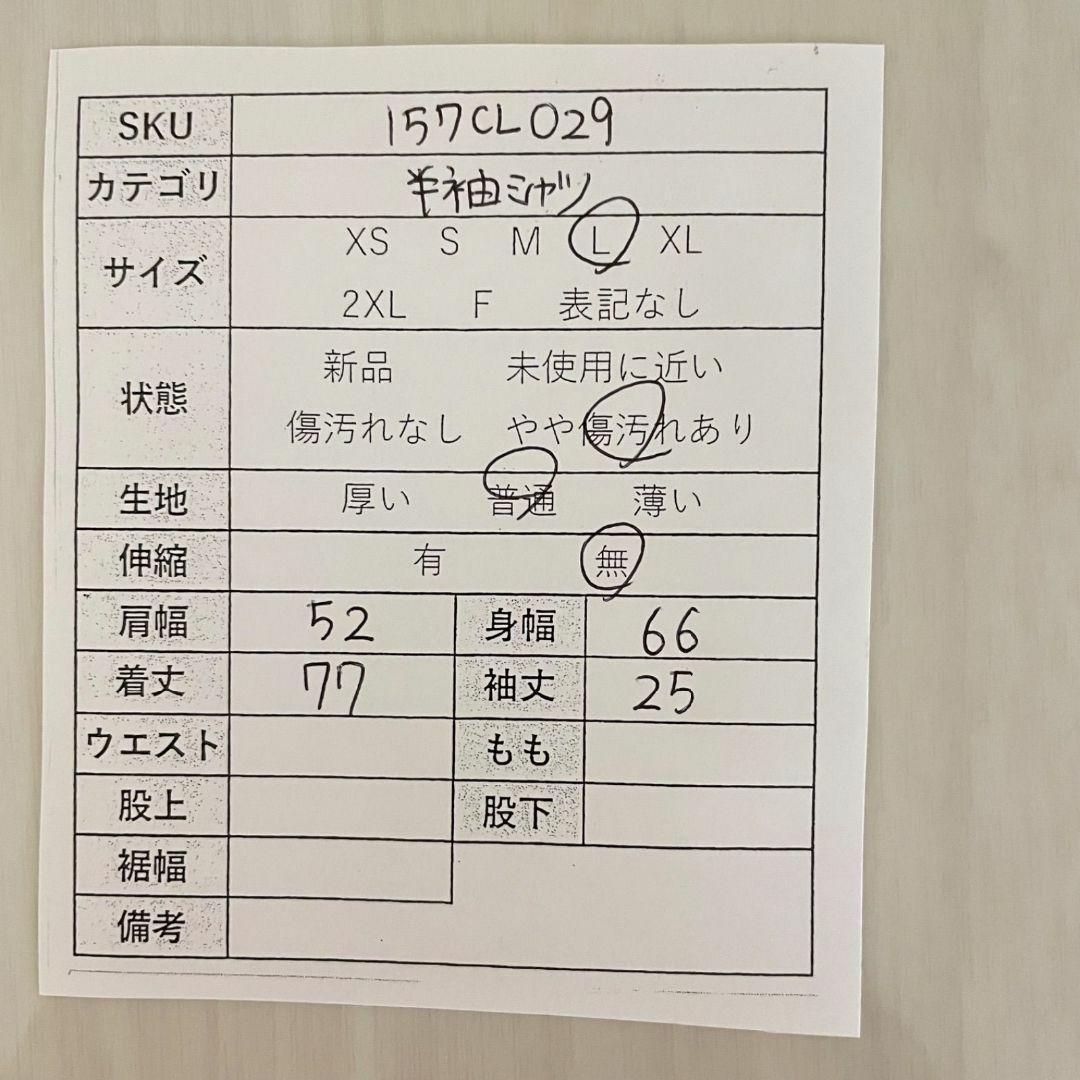 SKU 157CL029
カテゴリ 半袖シャツ
サイズ XS S M L XL
2XL F 表記なし
状態 新品 未使用に近い
傷汚れなし やや傷汚れあり
生地 厚い 普通 薄い
伸縮 有 無
肩幅 52 身幅 66
着丈 77 袖丈 25
ウエスト もも
股上 股下
裾幅
備考